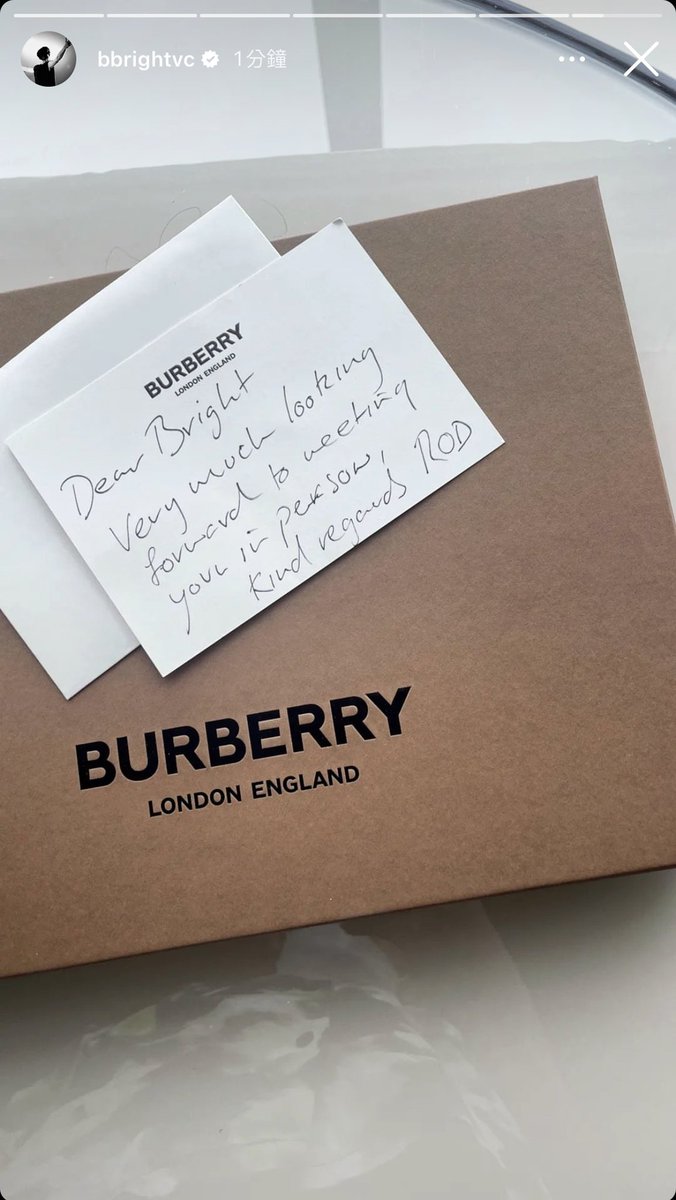 bbrightvc 1分鐘
BURBERRY
LONDON ENGLAND
Dear Bright
Very much looking
forward to meeting
you in person,
Kind regards ROD
BURBERRY
LONDON ENGLAND